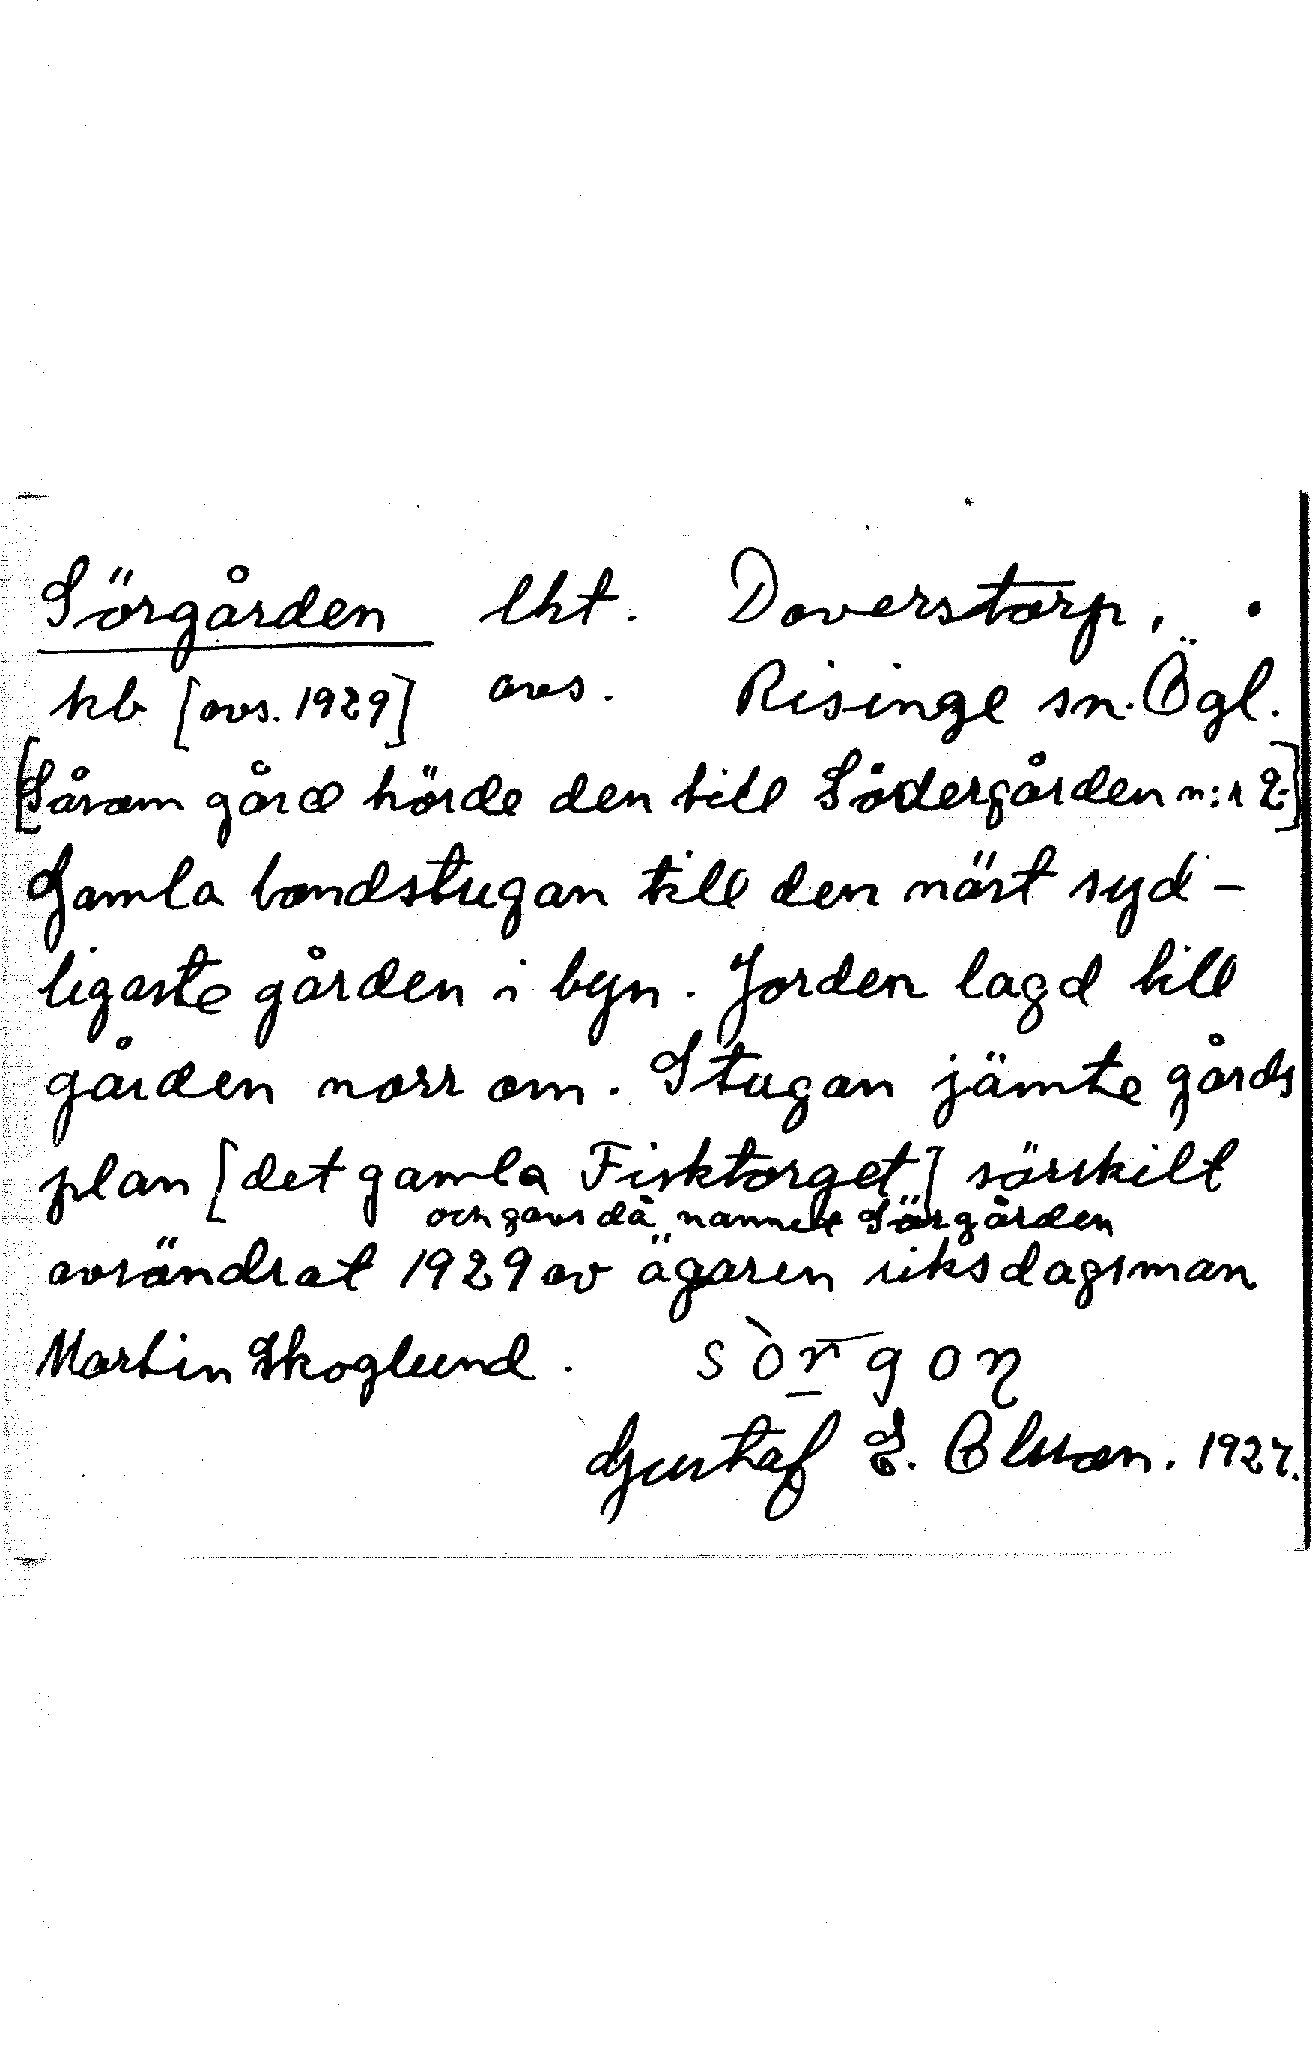 Sörgården lht. Doverstorp,
hb [avs. 1929] avs. Risinge sn. Ögl.
[Såsom gård hörde den till Södergården n:r 2.]
Gamla bondstugan till den näst syd-
ligaste gården i byn. Jorden lagd till
gården norr om. Stugan jämte gårds
plan [det gamla Fisktorget] särskilt
och gavs då namnet Sörgården
avsöndrat 1929 av ägaren riksdagsman
Martin Skoglund. sòrgon
Gustaf E. Olsson. 1927.